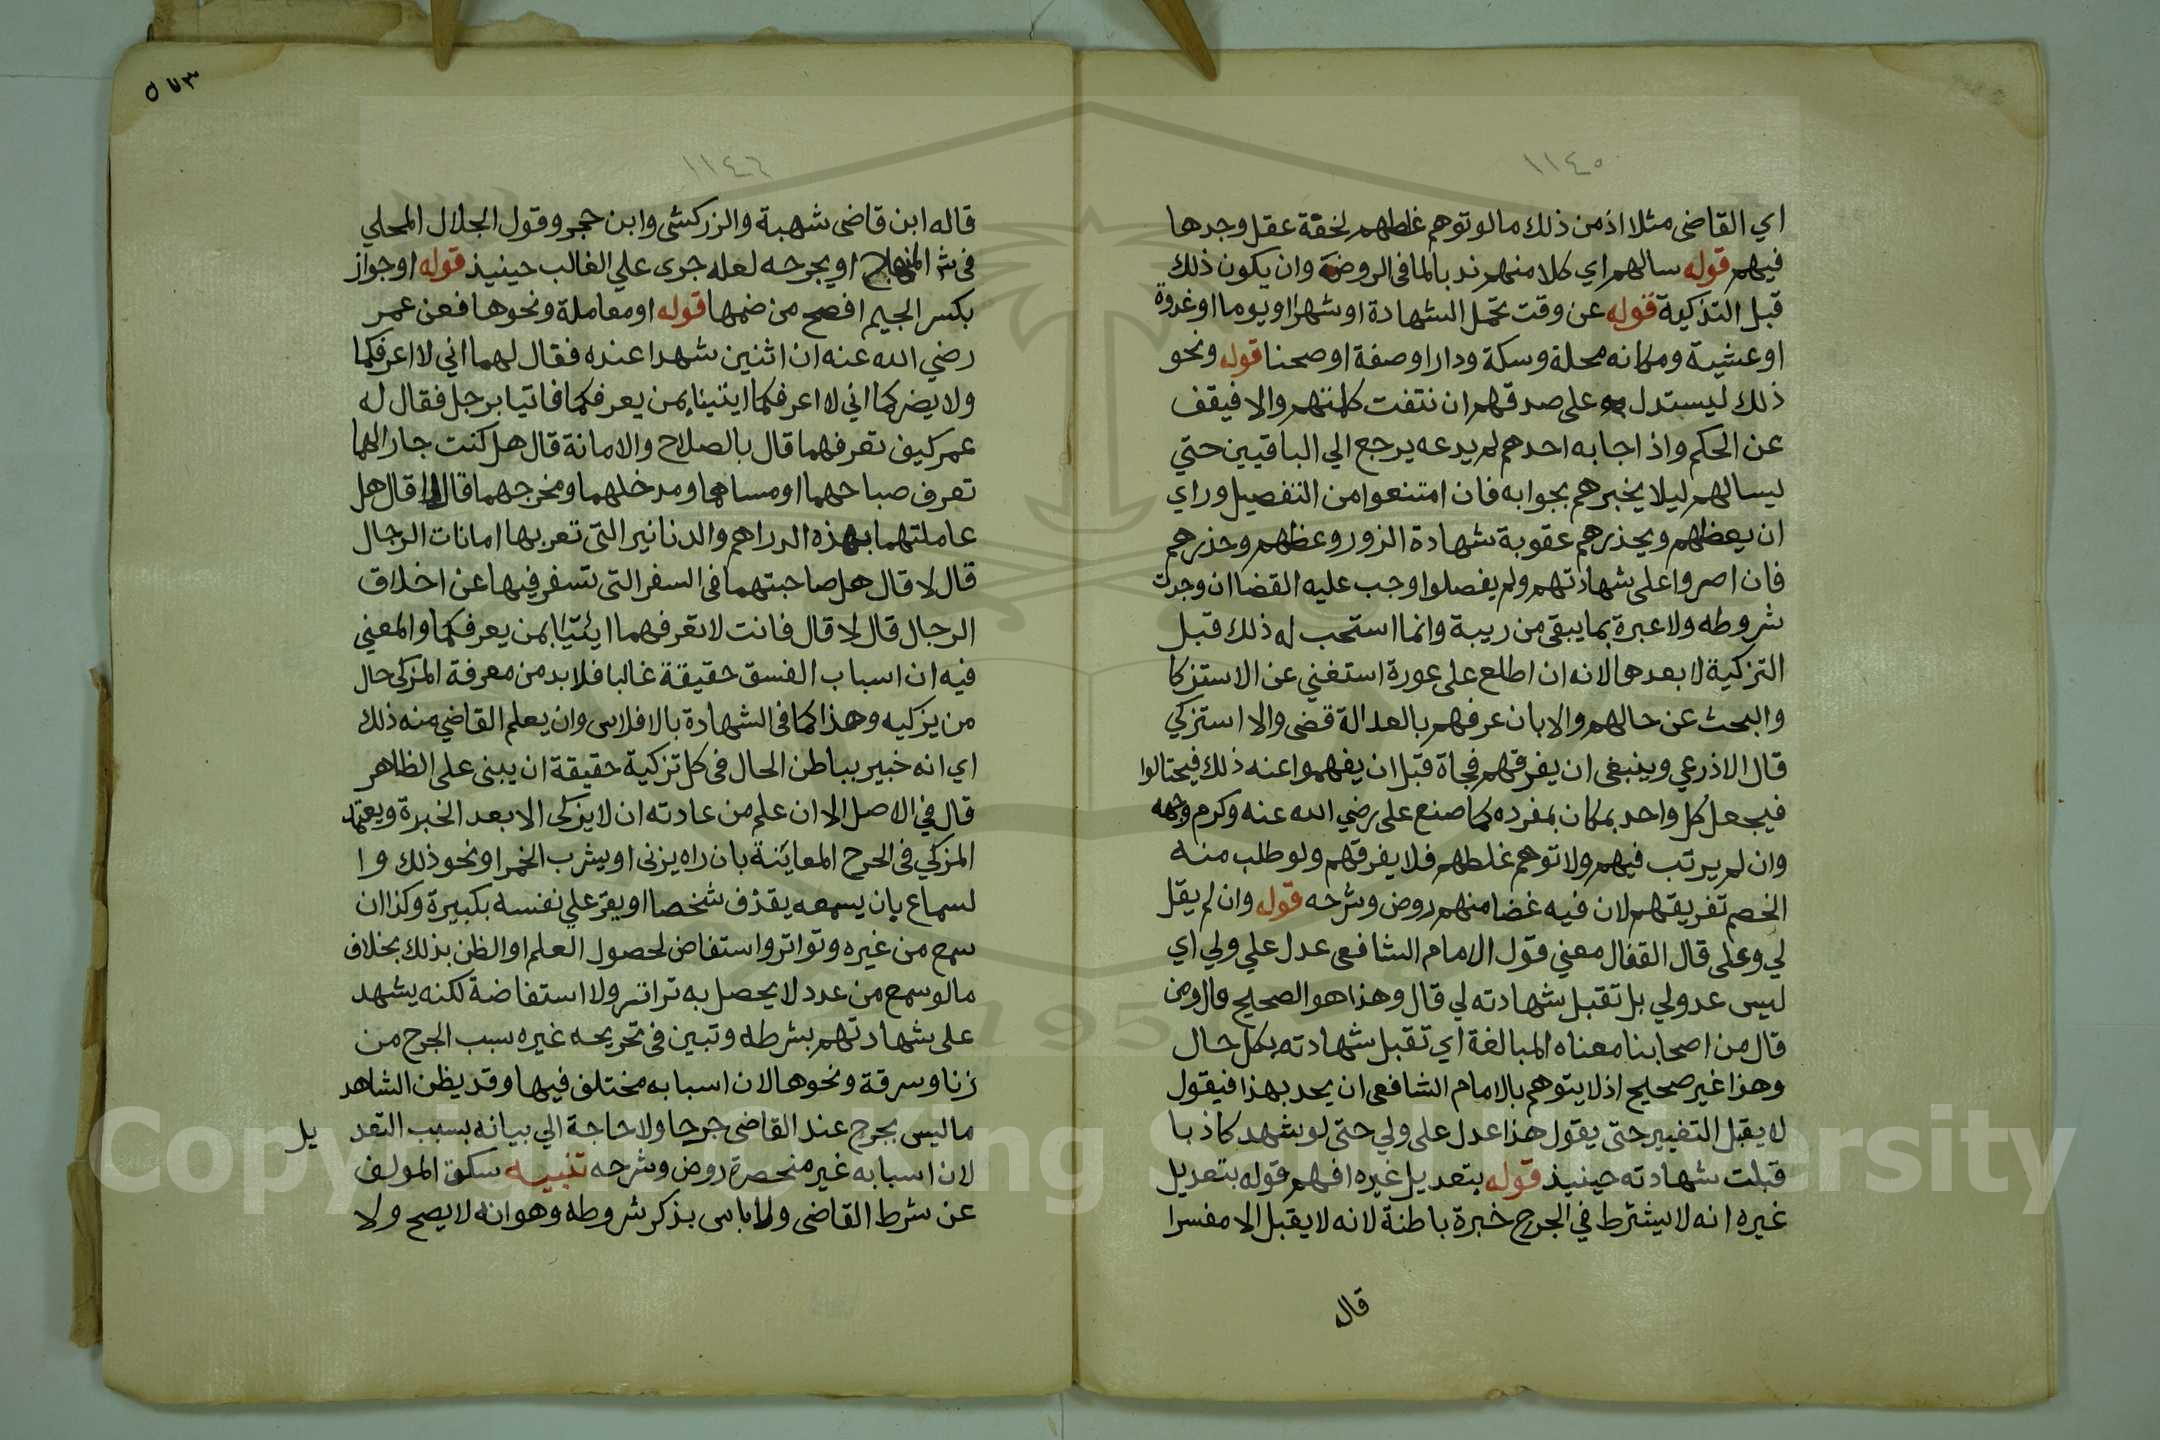 ١١٤٥
اي القاضى مثلا اذ من ذلك مالو توهم غلطهم لخفة عقل وجدها
فيهم قوله سالهم اي كلا منهم ندبا لما فى الروضة وان يكون ذلك
قبل التذكية قوله عن وقت تحمل الشهادة او شهرا او يوما او غدوة
او عشية ومكانه محلة وسكة ودارا وصفة او صحنا قوله ونحو
ذلك ليستدل به على صدقهم ان نتفت كلمتهم والا فيقف
عن الحكم واذا جابه احدهم لم يدعه يرجع الي الباقيين حتي
ليسالهم ليلا يخبرهم بجوابه فان امتنعوا من التفصيل وراي
ان يعظهم ويحذرهم عقوبة شهادة الزور وعظهم وحذرهم
فان اصروا على شهادتهم ولم يفصلوا وجب عليه القضا ان وجدت
شروطه ولا عبرة بما يبقى من ريبة وانما استحب له ذلك قبل
التزكية لا بعدها لانه ان اطلع على عورة استغني عن الاستزكا
والبحث عن حالهم والا بان عرفهم بالعدالة قضى والا استزكي
قال الاذرعي وينبغى ان يفرقهم فجاة قبل ان يفهموا عنه ذلك فيحتالوا
فيجعل كل واحد بمكان بمفرده كما صنع على رضي الله عنه وكرم وجهه
وان لم يرتب فيهم ولا توهم غلطهم فلا يفرقهم ولو طلب منه
الخصم تفريقهم لان فيه غضا منهم روض وشرحه قوله وان لم يقل
لي وعلى قال القفال معني قول الامام الشافعى عدل علي ولي اي
ليس عدو لي بل تقبل شهادته لي قال وهذا هو الصحيح قال ومن
قال من اصحابنا معناه المبالغة اي تقبل شهادته بكل حال
وهذا غير صحيح اذ لا يتوهم بالامام الشافعى ان يحد بهذا فيقول
لا يقبل التفيير حتى يقول هذا عدل على ولي حتى لو شهد كاذبا
قبلت شهادته حينيذ قوله بتعديل غيره افهم قوله بتعديل
غيره انه لا يشترط في الجرح خبرة باطنة لانه لا يقبل الا مفسرا
قال
٥٧٣
١١٤٦
قاله ابن قاضى شهبة والزركشى وابن حجر وقول الجلال المحلي
فى شر المنهاج او يجرحه لعله جرى علي الغالب حينيذ قوله او جواز
بكسر الجيم افصح من ضمها قوله او معاملة ونحوها فعن عمر
رضي الله عنه ان اثنين شهدا عنده فقال لهما اني لا اعرفكما
ولا يضركما اني لا اعرفكما ايتينا بمن يعرفكما فاتيا برجل فقال له
عمر كيف تعرفهما قال بالصلاح والامانة قال هل كنت جارا لهما
تعرف صباحهما او مساهما ومدخلهما ومخرجهما قال لا قال هل
عاملتهما بهذه الدراهم والدنانير التى تعر بها امانات الرجال
قال لا قال هل صاحبتهما فى السفر التى تسفر فيها عن اخلاق
الرجال قال لا قال فانت لا تعرفهما ايئتيا بمن يعرفكما والمعني
فيه ان اسباب الفسق حقيقة غالبا فلا بد من معرفة المزكى حال
من يزكيه وهذا كما فى الشهادة بالافلاس وان يعلم القاضي منه ذلك
اي انه خبير بباطن الحال فى كل تزكية حقيقة ان يبنى على الظاهر
قال في الاصل الا ان علم من عادته ان لا يزكى الا بعد الخبرة ويعتمد
المزكي فى الجرح المعاينة بان راه يزنى او يشرب الخمر او نحو ذلك وا
لسماع بان يسمعه يقذف شخصا او يقر علي نفسه بكبيرة وكذا ان
سمع من غيره وتواتر واستفاض لحصول العلم او الظن بذلك بخلاف
مالو سمع من عدد لا يحصل به تراتر ولا استفاضة لكنه يشهد
على شهادتهم بشرطه وتبين فى تجريحه غيره سبب الجرح من
زنا وسرقة ونحوها لان اسبابه مختلف فيها وقد يظن الشاهد
ما ليس بجرح عند القاضى جرحا ولا حاجة الي بيانه بسبب التعد يل
لان اسبابه غير منحصرة روض وشرحه تنبيه سكت المولف
عن شرط القاضى ولا باس بذكر شروطه وهو انه لا يصح ولا
Copyright © King Saud University
195